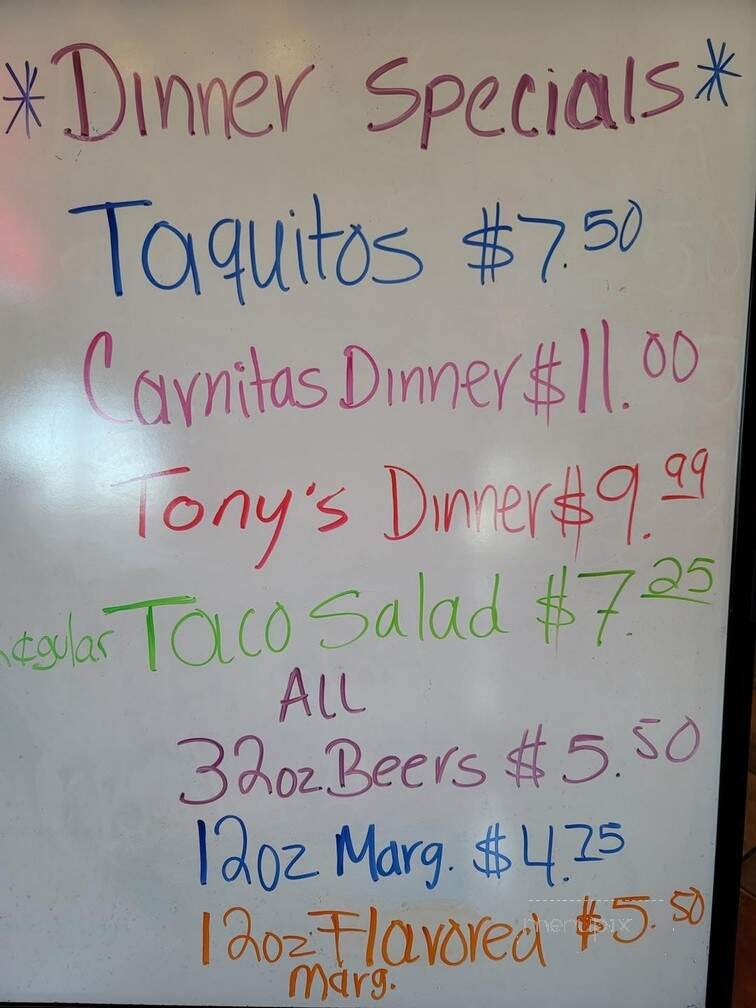 *Dinner Specials*
Taquitos $7.50
Carnitas Dinner $11.00
Tony's Dinner $9.99
regular Taco Salad $7.25
All
32oz Beers $5.50
12oz Marg. $4.75
12oz Flavored $5.50
marg.
menupix